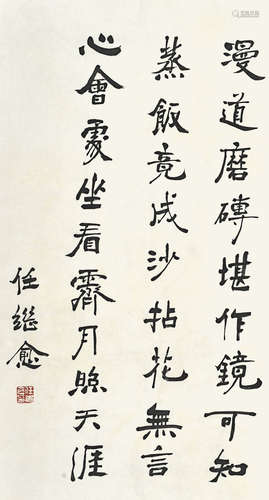 漫道磨磚堪作鏡可知
蒸飯竟成沙拈花無言
心會處坐看霽月照天涯
任繼愈